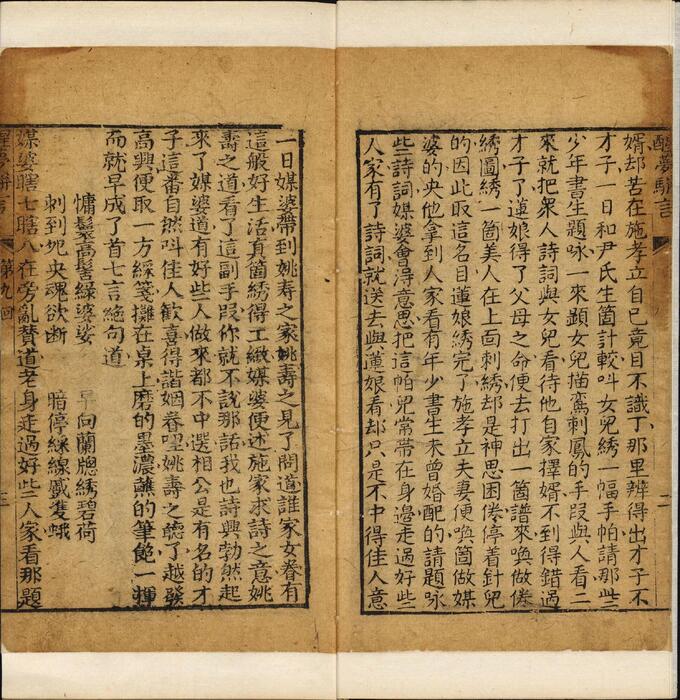 醒夢駢言
二
婿却苦在施孝立自己竟目不識丁那里辨得出才子不
才子一日和尹氏生箇計較呌女兒綉一幅手帕請那些
少年書生題咏一來顕女兒描鸞刺鳳的手叚與人看二
來就把衆人詩詞與女兒看待他自家擇婿不到得錯過
才子了蓮娘得了父母之命便去打出一箇譜來喚做倦
綉圖綉一箇美人在上面刺綉却是神思困倦停着針兒
的因此取這名目蓮娘綉完了施孝立夫妻便喚箇做媒
婆的央他拿到人家看有年少書生未曾婚配的請題咏
些詩詞媒婆會得意思把這帕兒常帶在身邊走過好些
人家有了詩詞就送去與蓮娘看却只是不中得佳人意
一日媒婆帶到姚壽之家姚壽之見了問道誰家女眷有
這般好生活真箇綉得工緻媒婆便述施家求詩之意姚
壽之道看了這副手叚你就不說那話我也詩興勃然起
來了媒婆道有好些人做來都不中選相公是有名的才
子這番自然呌佳人歡喜得諧姻眷哩姚壽之聽了越發
高興便取一方綵箋攤在桌上磨的墨濃蘸的筆飽一揮
而就早成了首七言絶句道
慵鬟高髻綠婆娑　早向蘭牕綉碧荷
刺到鴛央魂欲斷　暗停綵線蹙雙蛾
媒婆瞎七瞎八在旁亂贊道老身走過好些人家看那題
醒夢駢言
第九回
三